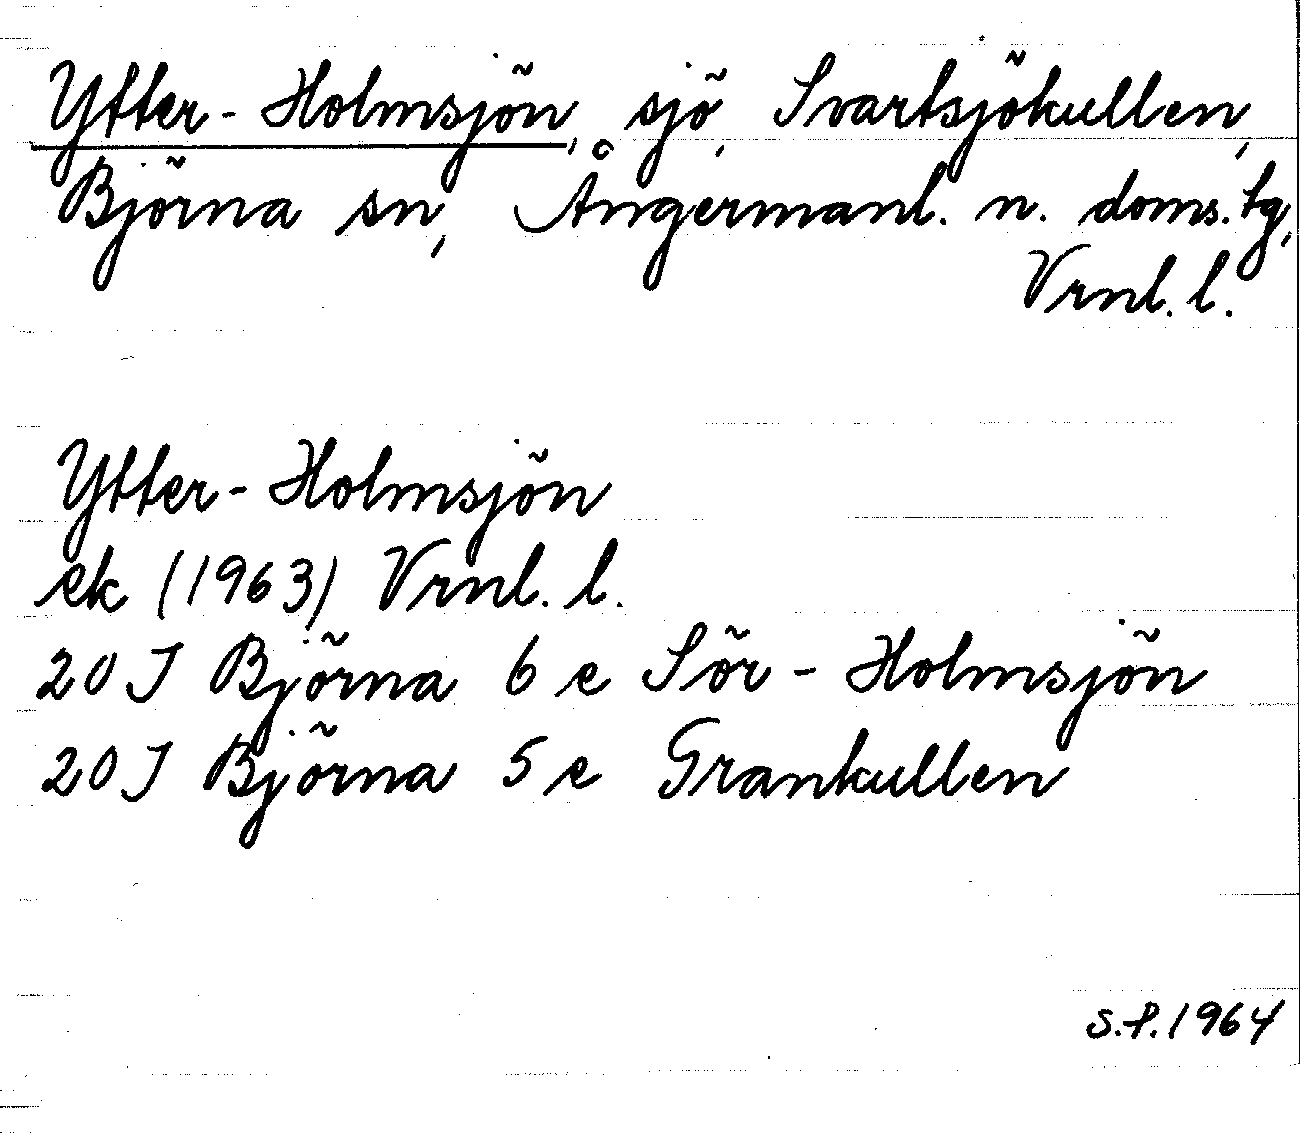 Ytter-Holmsjön, sjö, Svartsjökullen,
Björna sn, Ångermanl. n. doms. tg,
Vrnl. l.
Ytter-Holmsjön
ek (1963) Vrnl. l.
20 J Björna 6 e Sör-Holmsjön
20 J Björna 5 e Grankullen
S.P. 1964